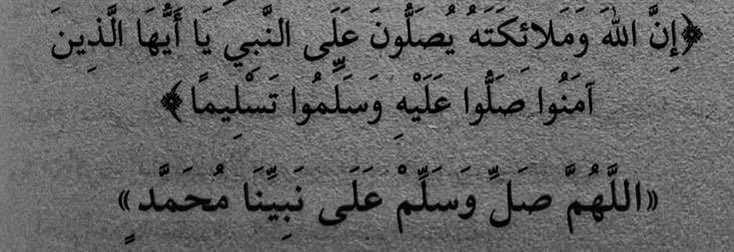 ﴿إِنَّ اللهَ وَمَلائِكَتَهُ يُصَلُّونَ عَلَى النَّبِيِّ يَا أَيُّهَا الَّذِينَ
آمَنُوا صَلُّوا عَلَيْهِ وَسَلِّمُوا تَسْلِيمًا﴾
«اللَّهُمَّ صَلِّ وَسَلِّمْ عَلَى نَبِيِّنَا مُحَمَّدٍ»